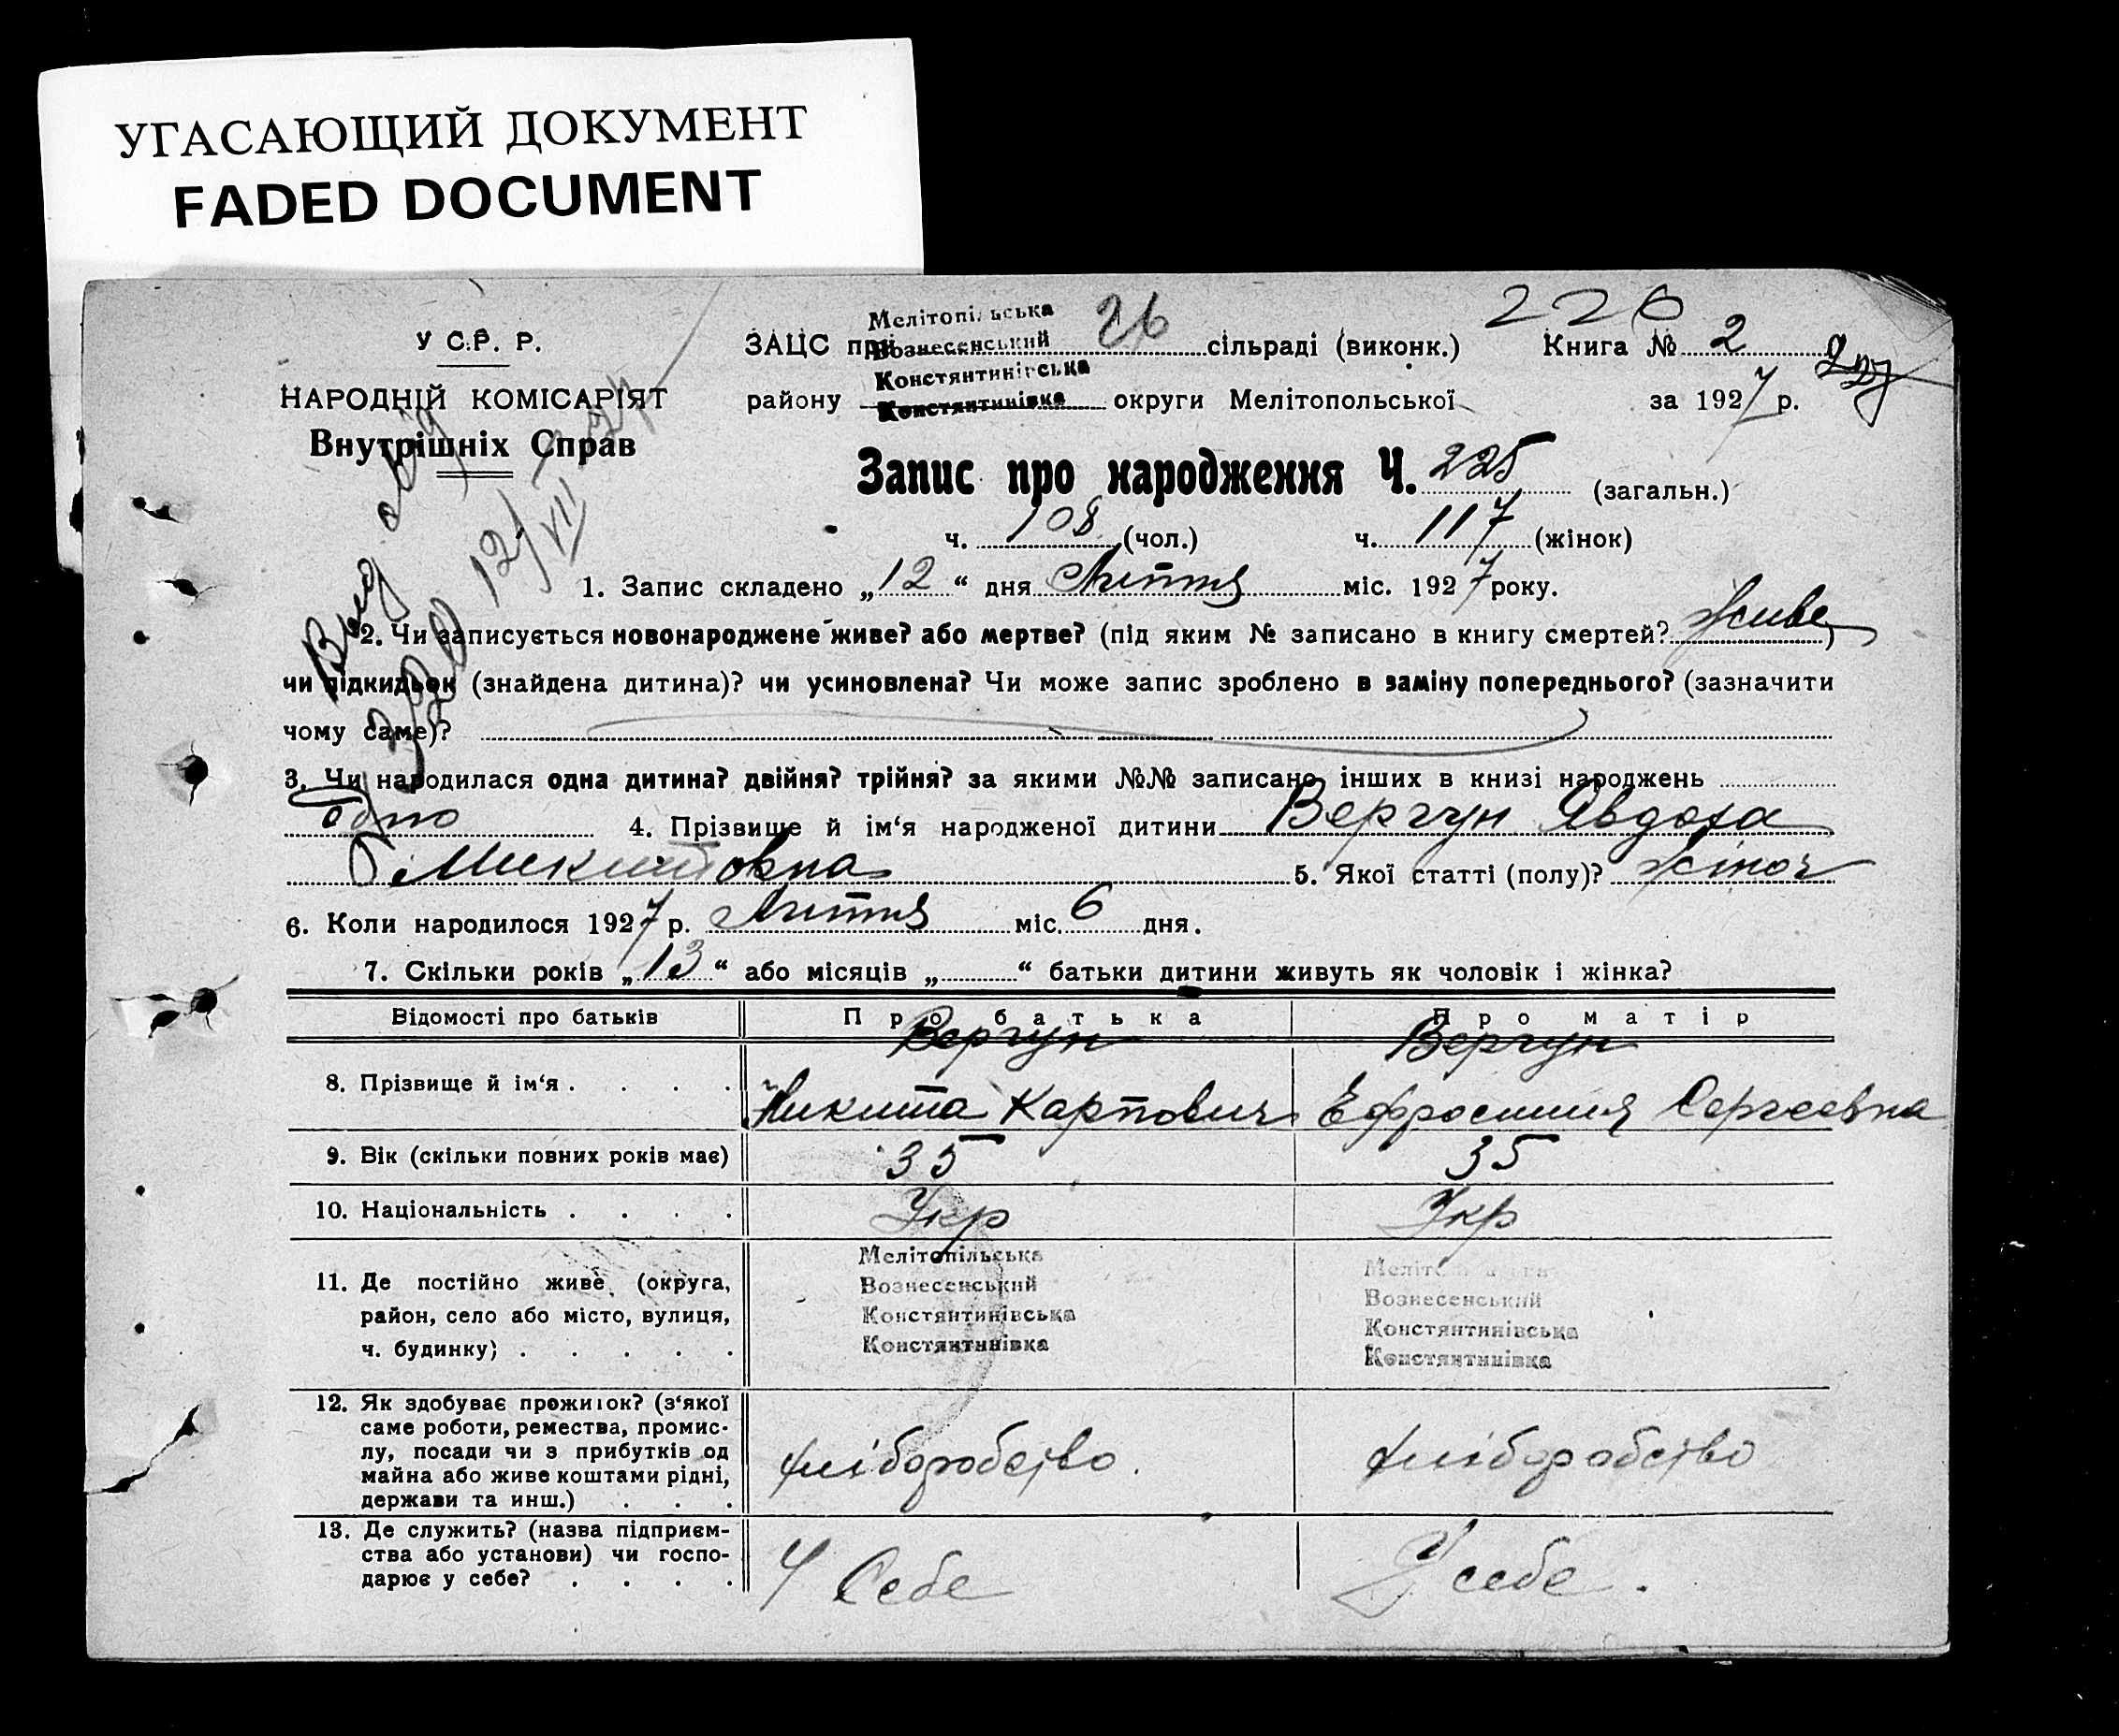 УГАСАЮЩИЙ ДОКУМЕНТ
FADED DOCUMENT
226
У С.Р. Р.
НАРОДНІЙ КОМІСАРІЯТ
Внутрішніх Справ
Мелітопільська
Вознесенський
Констянтинівська
Констянтинівка
26
ЗАЦС при сільраді (виконк.) Книга № 2
227
району округи Мелітопольської за 1927 р.
Запис про народження Ч. 225 (загальн.)
ч. 108 (чол.) ч. 117 (жінок)
1. Запис складено „12“ дня Липня міс. 1927 року.
2. Чи записується новонароджене живе? або мертве? (під яким № записано в книгу смертей? живе)
чи підкидьок (знайдена дитина)? чи усиновлена? Чи може запис зроблено в заміну попереднього? (зазначити
чому саме)?
3. Чи народилася одна дитина? двійня? трійня? за якими №№ записано інших в книзі народжень
одно 4. Прізвище й ім'я народженої дитини Вергун Явдоха
Микитовна 5. Якої статті (полу)? жіноч
6. Коли народилося 1927 р. Липня міс. 6 дня.
7. Скільки років „13“ або місяців „ “ батьки дитини живуть як чоловік і жінка?
Відомості про батьків Про батька Про матір
Вергун Вергун
8. Прізвище й ім‘я . . . . Никита Карпович Ефросиния Сергеевна
9. Вік (скільки повних років має) 35 35
10. Національність . . . . Укр Укр
11. Де постійно живе (округа,
район, село або місто, вулиця,
ч. будинку) . . . . .
Мелітопільська
Вознесенський
Констянтинівська
Констянтинівка
Вознесенський
Констянтинівська
Констянтинівка
12. Як здобуває прожиток? (з‘якої
саме роботи, ремества, промис-
лу, посади чи з прибутків од
майна або живе коштами рідні,
держави та инш.) . . .
хліборобство. хліборобство
13. Де служить? (назва підприєм-
ства або установи) чи госпо-
дарює у себе? . . . .
У Себе У себе.